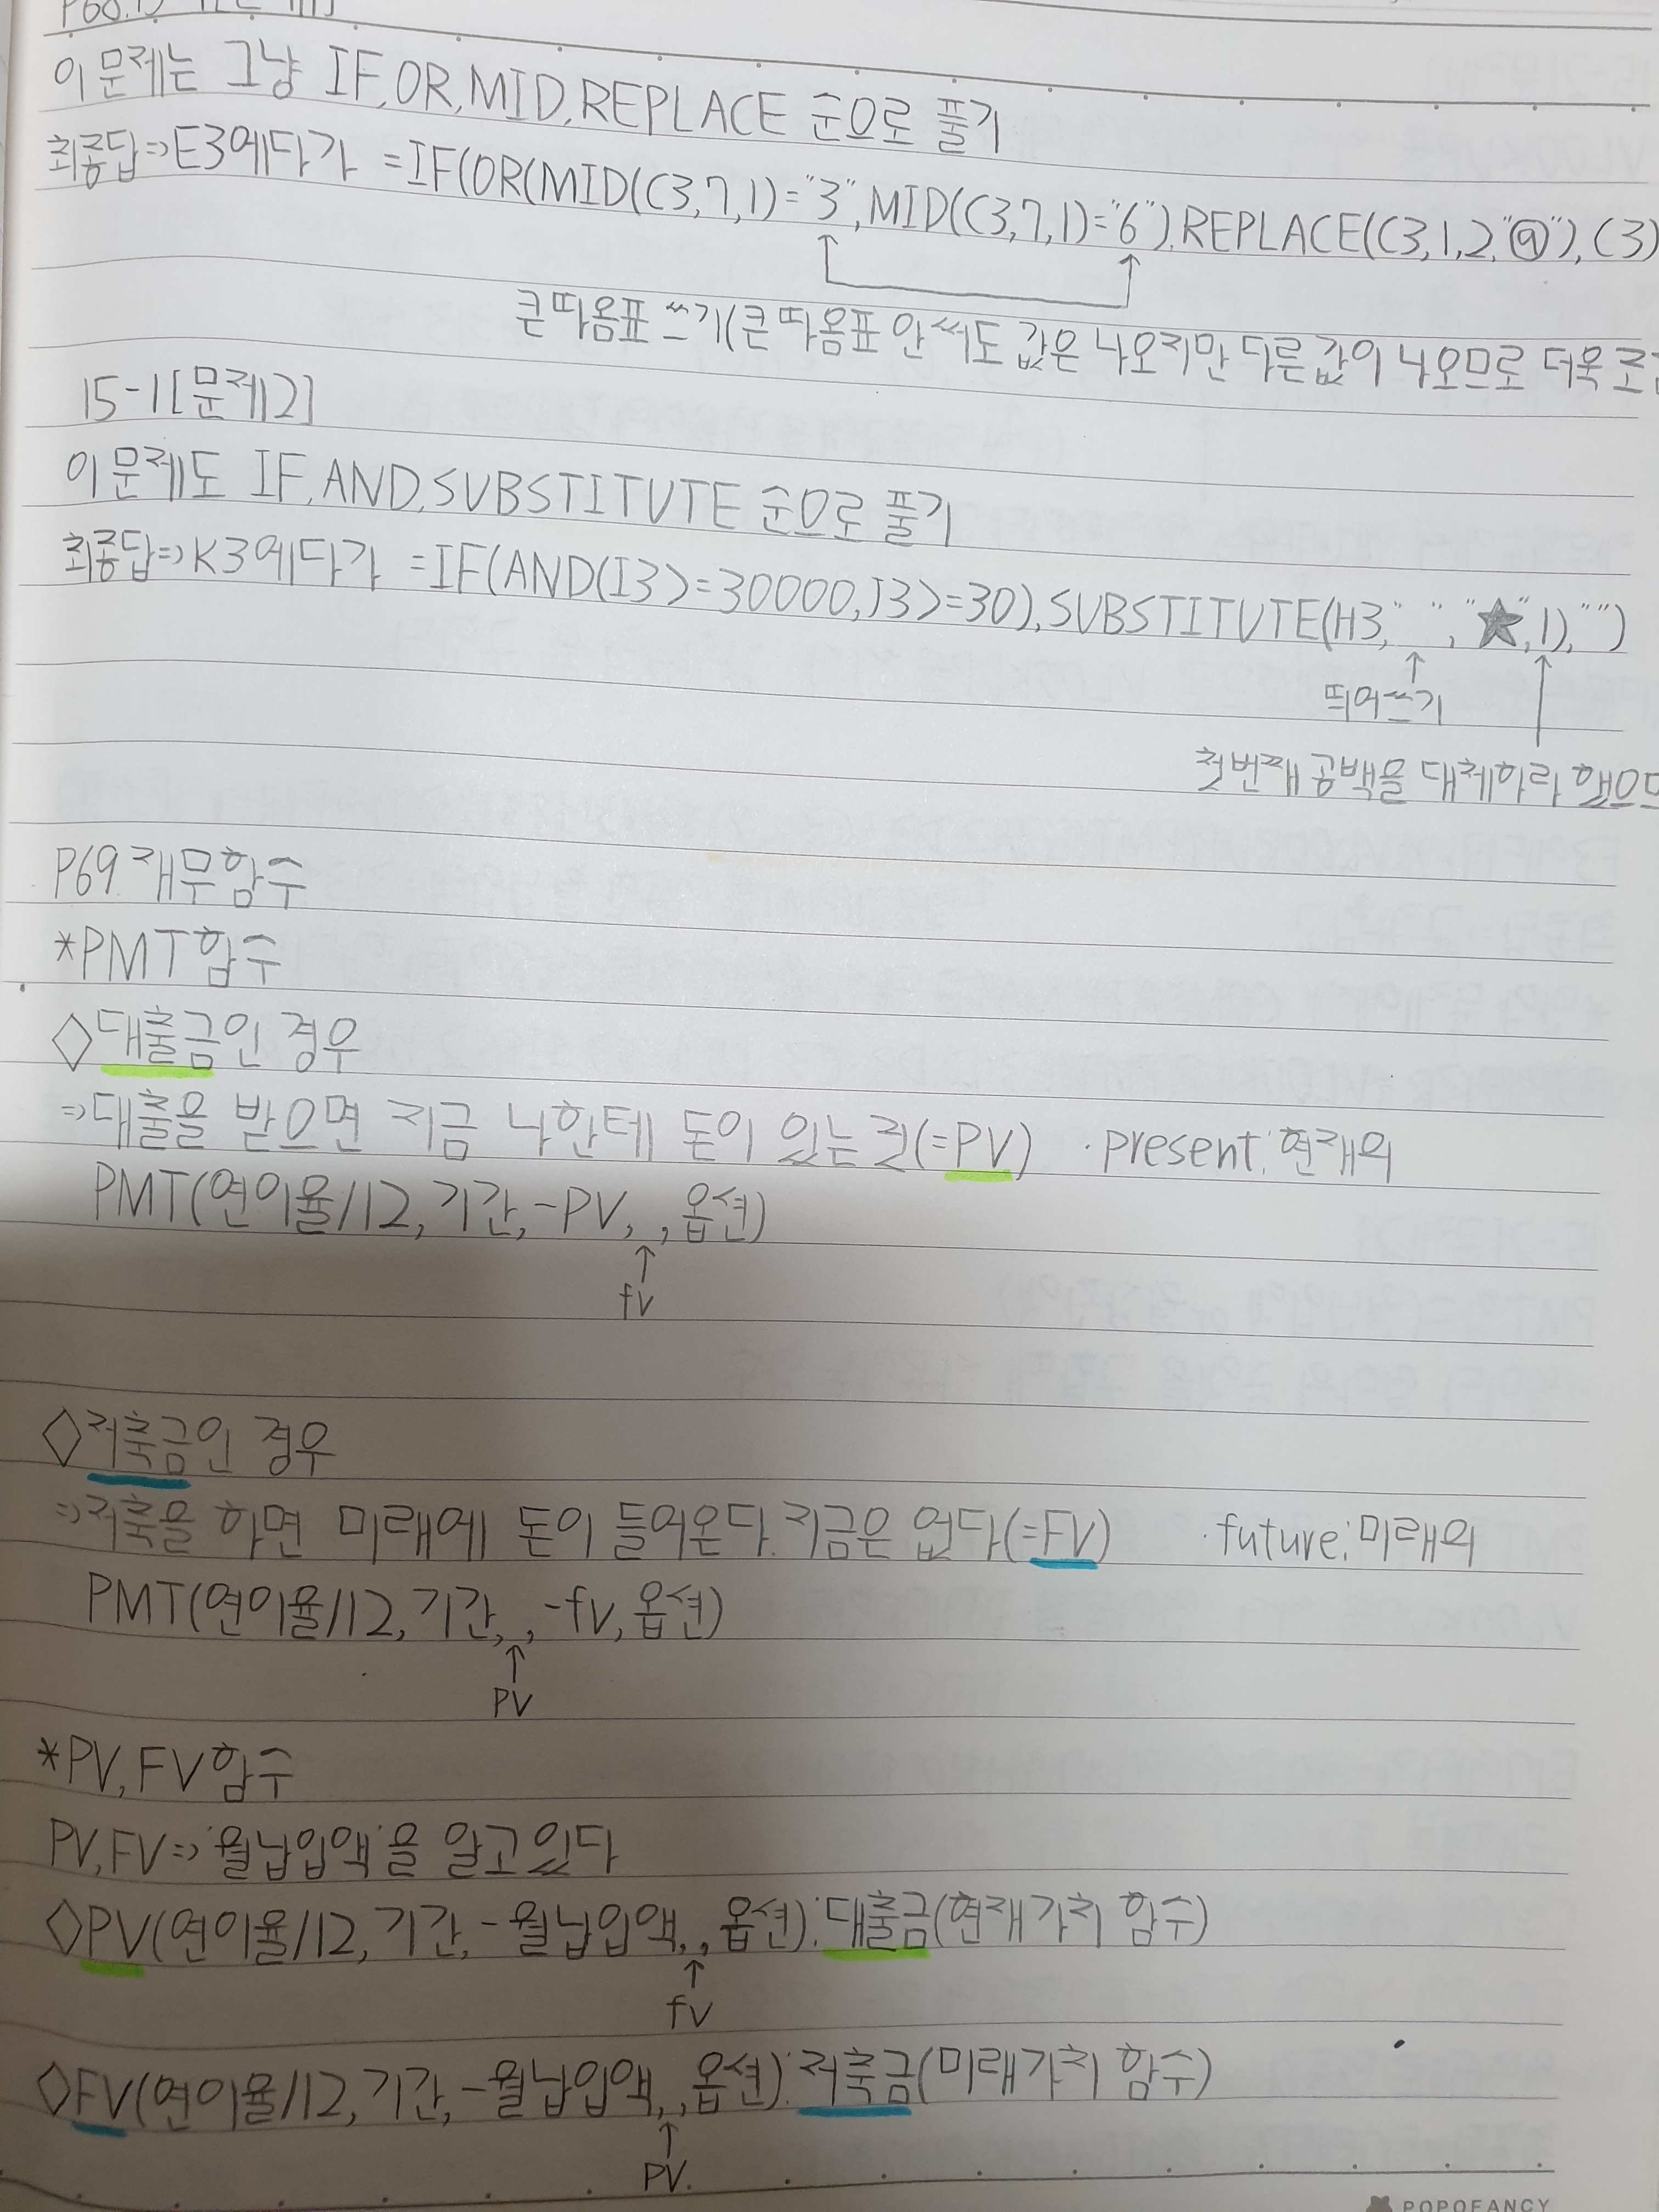 이 문제는 그냥 IF,OR,MID,REPLACE 순으로 풀기
최종답=>E3에다가 =IF(OR(MID(C3,7,1)="3",MID(C3,7,1)="6"),REPLACE(C3,1,2,"@"),C3)
큰따옴표 쓰기(큰따옴표 안써도 값은 나오지만 다른값이 나오므로 더욱
15-1[문제2]
이 문제도 IF,AND,SUBSTITUTE 순으로 풀기
최종답=>K3에다가 =IF(AND(I3>=30000,J3>=30),SUBSTITUTE(H3," ","★",1),"")
띄어쓰기
첫번째 공백을 대체하라 했으므
P69.재무함수
*PMT함수
◇대출금인 경우
=>대출을 받으면 지금 나한테 돈이 있는 것(=PV) ·present:현재의
PMT(연이율/12,기간,-PV, ,옵션)
fv
◇저축금인 경우
=>저축을 하면 미래에 돈이 들어온다.지금은 없다(=FV) ·future:미래의
PMT(연이율/12,기간, ,-fv,옵션)
PV
*PV,FV함수
PV,FV=>'월납입액'을 알고있다
◇PV(연이율/12,기간,-월납입액, ,옵션):대출금(현재가치 함수)
fv
◇FV(연이율/12,기간,-월납입액, ,옵션):저축금(미래가치 함수)
PV.
POPOFANCY